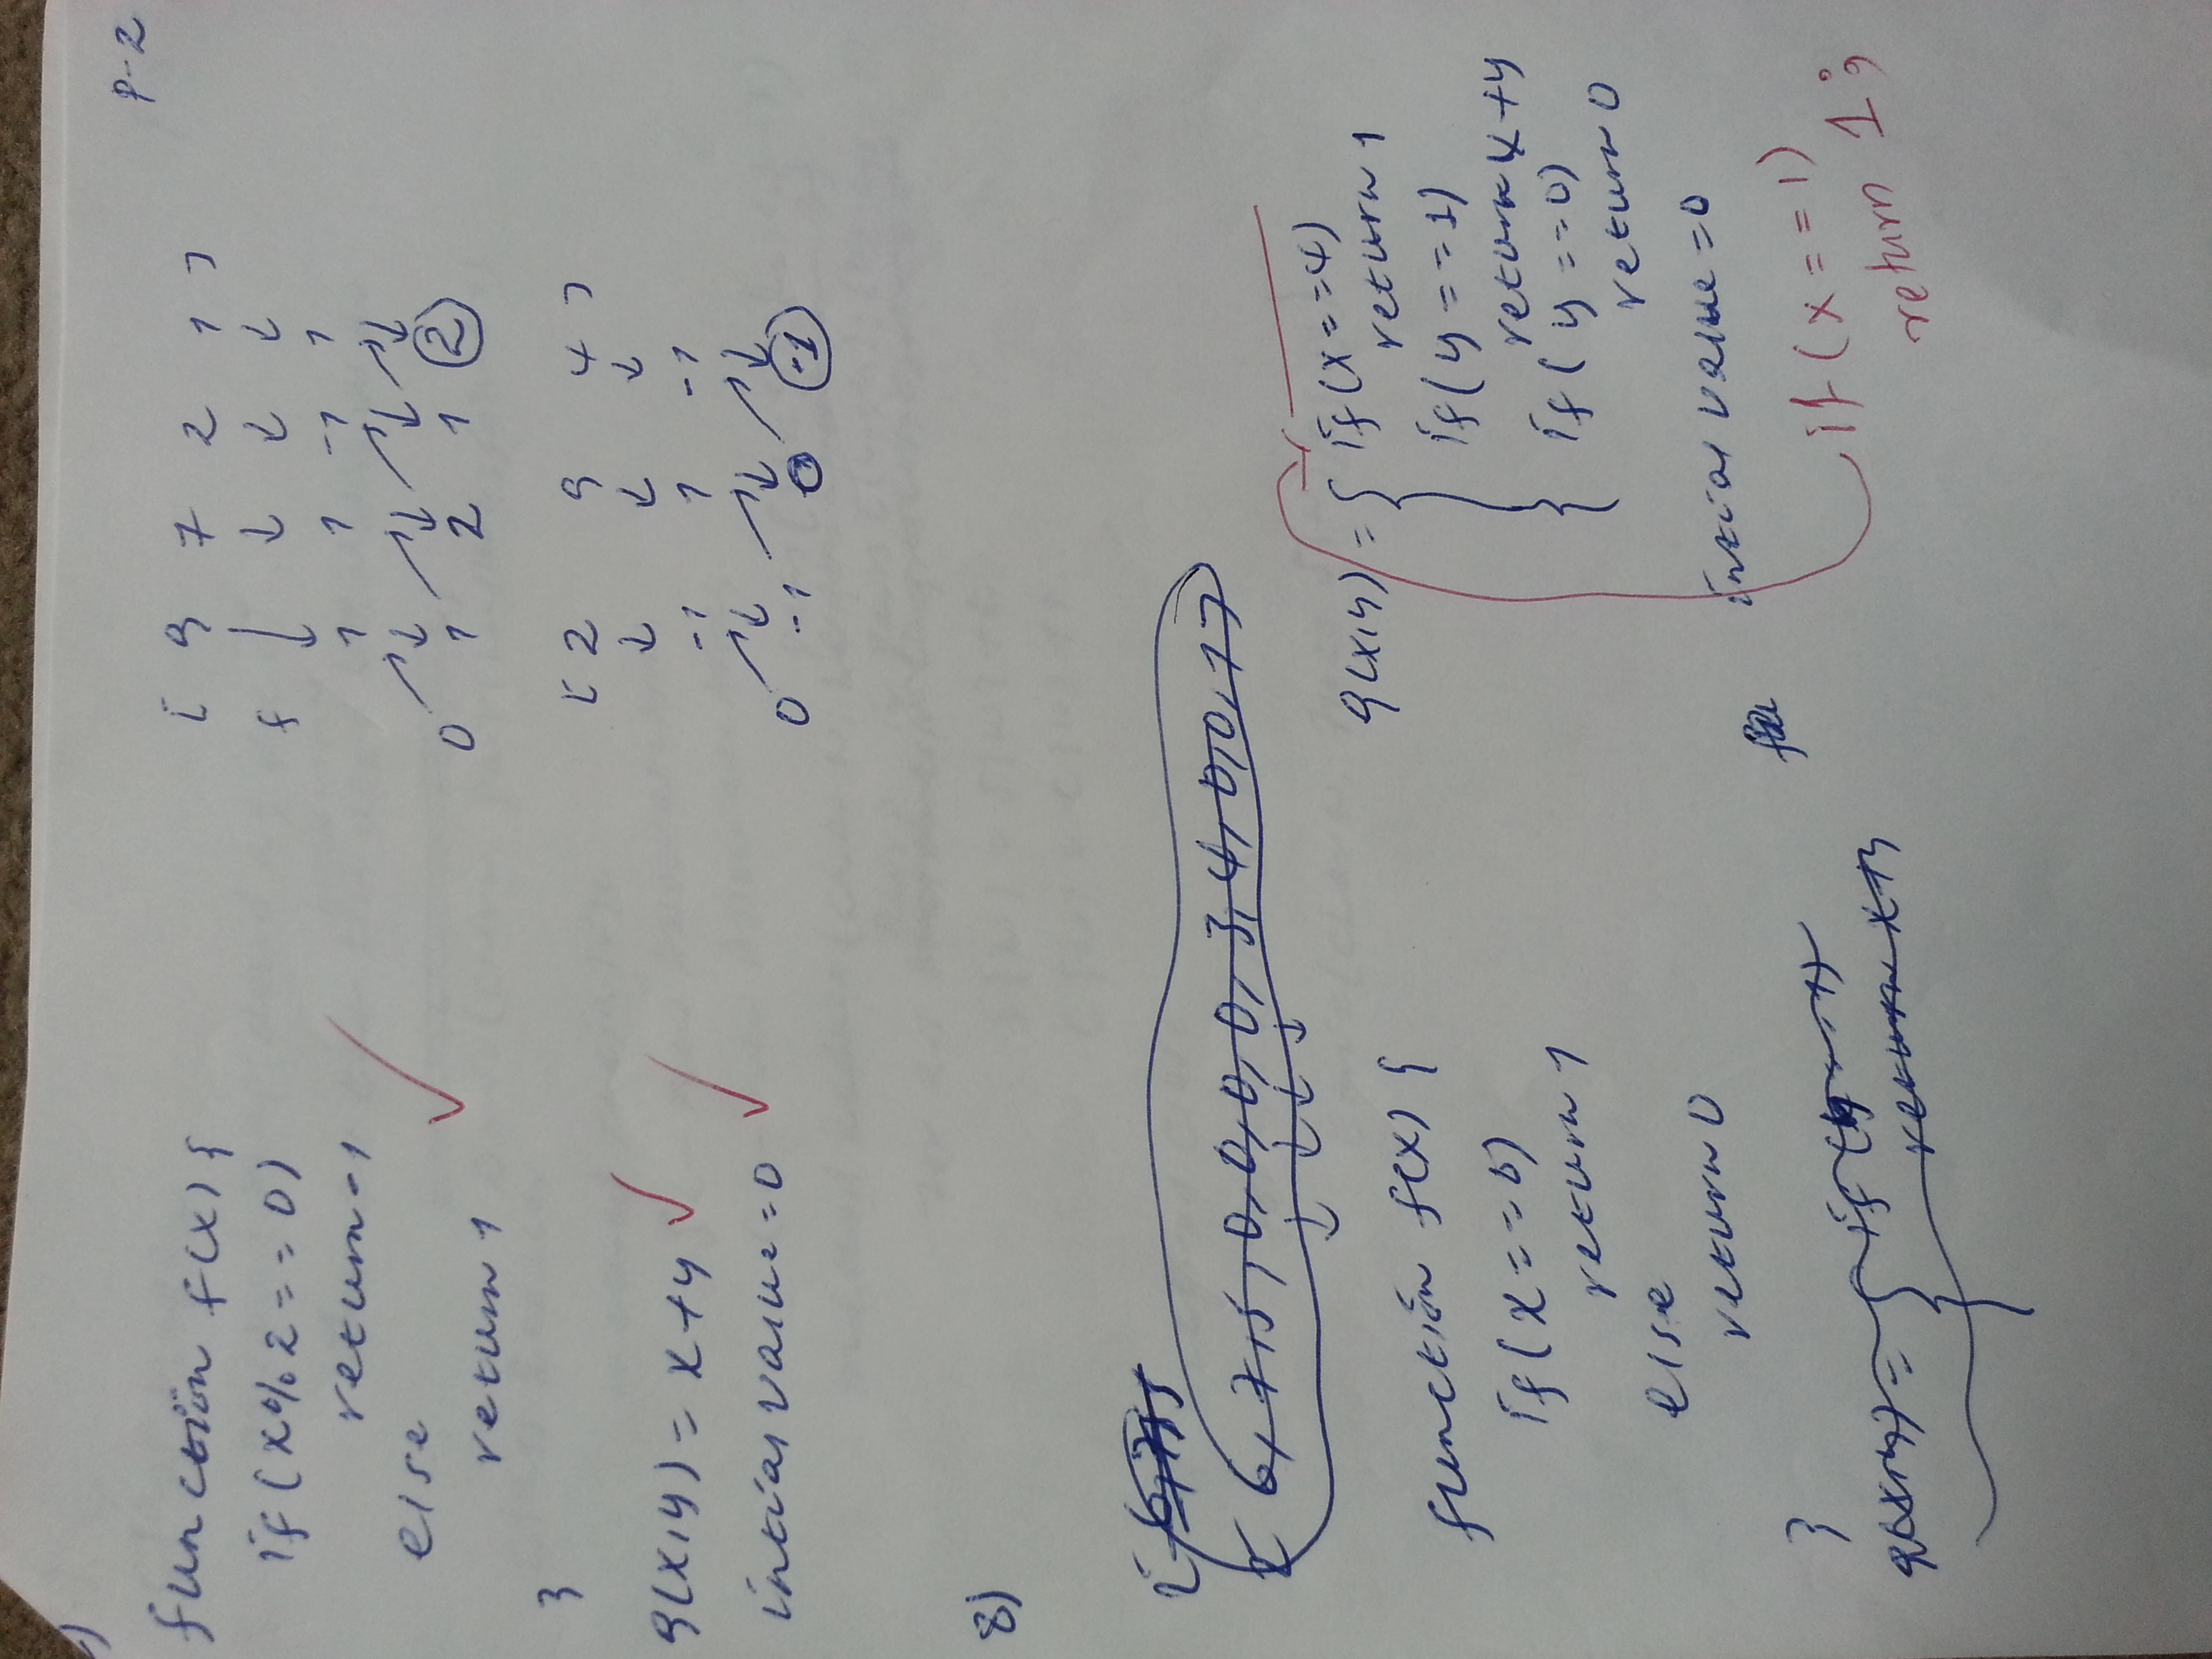 P-2
function f(x) {
if (x % 2 == 0)
return -1
else
return 1
}
g(x,y) = x+y
intial value = 0
[ 9 7 2 1 ]
f
1 1 -1 1
0 1 2 1 2
[ 2 9 4 ]
-1 1 -1
0 -1 0 -1
8)
[ 6, 7, 5
[ 6, 7, 5, 0, 0, 0, 0, 3, 4, 0, 0, 1 ]
function f(x) {
if (x == 0)
return 1
else
return 0
}
g(x,y) = {
return x+y
g(x,y) = { if (x == 4)
return 1
if (y == 1)
return x+y
if (y == 0)
return 0
intial value = 0
if (x == 1)
return 1;